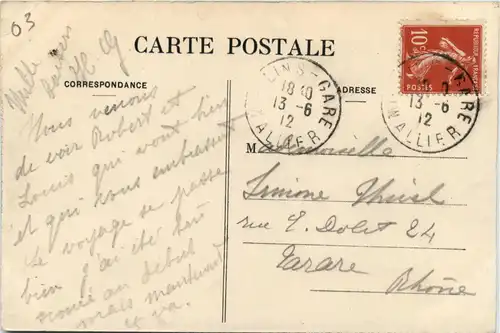 03
Mille baisers
CARTE POSTALE
CORRESPONDANCE
ADRESSE
RÉPUBLIQUE FRANÇAISE
10c
POSTES
LINS-GARE
18 40
13 -6
12
ALLIER
GARE
13 -6
12
ALLIER
Nous venons
de voir Robert et
Louis qui vont bien
et qui vous embrassent
Le voyage se passe
bien j'ai été un
au début
mais maintenant
ça va.
Mademoiselle
Simone
rue E. Dolet 24
Tarare
Rhône